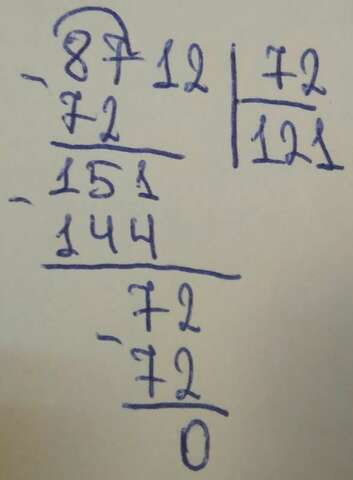 8712 72
72 121
151
144
72
72
0